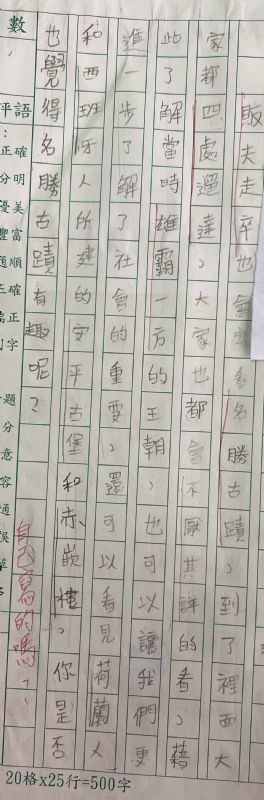 販夫走卒也會去看名勝古蹟，到了裡西大
家都四處遛達，大家也都會不厭其詳的看，藉
此了解當時雄霸一方的王朝，也可以讓我們更
進一步了解了社會的重要，還可以看見荷蘭人
和西班牙人所建的安平古堡和赤嵌樓，你是否
也覺得名勝古蹟有趣呢？
自己寫的嗎？
數
評語：
正確
分明
優美
豐富
通順
正確
題
分
意
容
通
20格x25行=500字